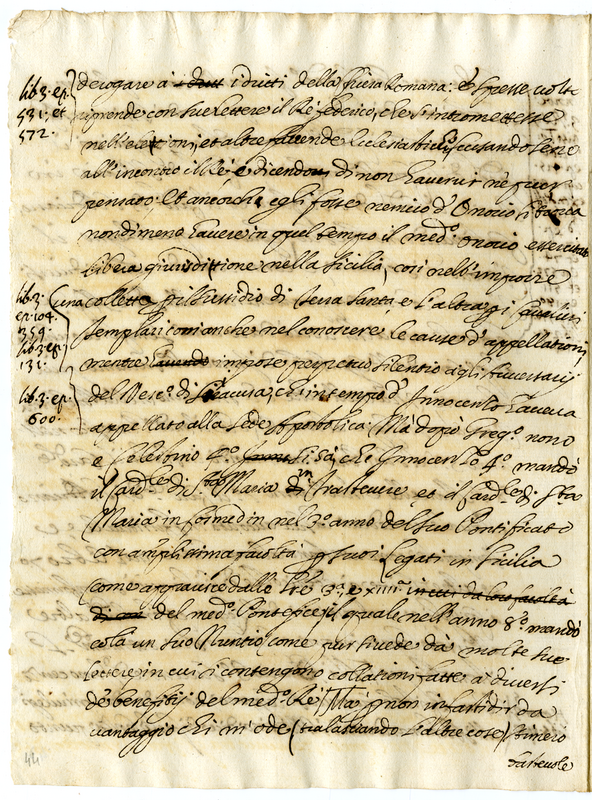 lib. 3. ep.
531. et
572.
derogare a i dritti della Chiesa Romana: et spesse volte
riprende con sue lettere il Re federico, che s'intromettesse
nell'elettioni, et altre facende Ecclesiastiche, scusandosene
all'incontro il Re, e dicendo di non havervi nè pur
pensato. Et ancorche egli fosse nemico d'Onorio
nondimeno havere in quel tempo il med.o Onorio esercitata
libera giurisdittione nella Sicilia, così nell'imporre
lib. 3.
ep. 104.
359.
lib. 3. ep.
131.
una colletta p il sussidio di Terra Santa, e l'altra p i Cavalieri
Templari, com'anche nel conoscere le cause d'appellationi,
mentre impose perpetuo silentio agli Avversarij
lib. 3. ep.
600.
del Vesc.o di Siracusa, ch'in tempo d'Innocentio haveva
appellato alla Sede Apostolica. Ma dopo Greg.o nono
e Celestino 4.o si sà, che Innocentio 4.o mandò
il Card.le di S.ta Maria in Trastevere, et il Card.le di S.ta
Maria in nel 3.o anno del suo Pontificato
con amplissima facoltà p suoi Legati in Sicilia
come apparisce dalle 3.a, e xiiii.a
del med.o Pontefice, il quale nell'anno 8.o mandò
colà un suo Nuntio, come pur si vede da molte sue
lettere in cui si contengono collationi fatte a diversi
de benefitij del med.o Re. Ma p non infastidir da
vantaggio chi m'ode (tralasciando l'altre cose) stimerò
44